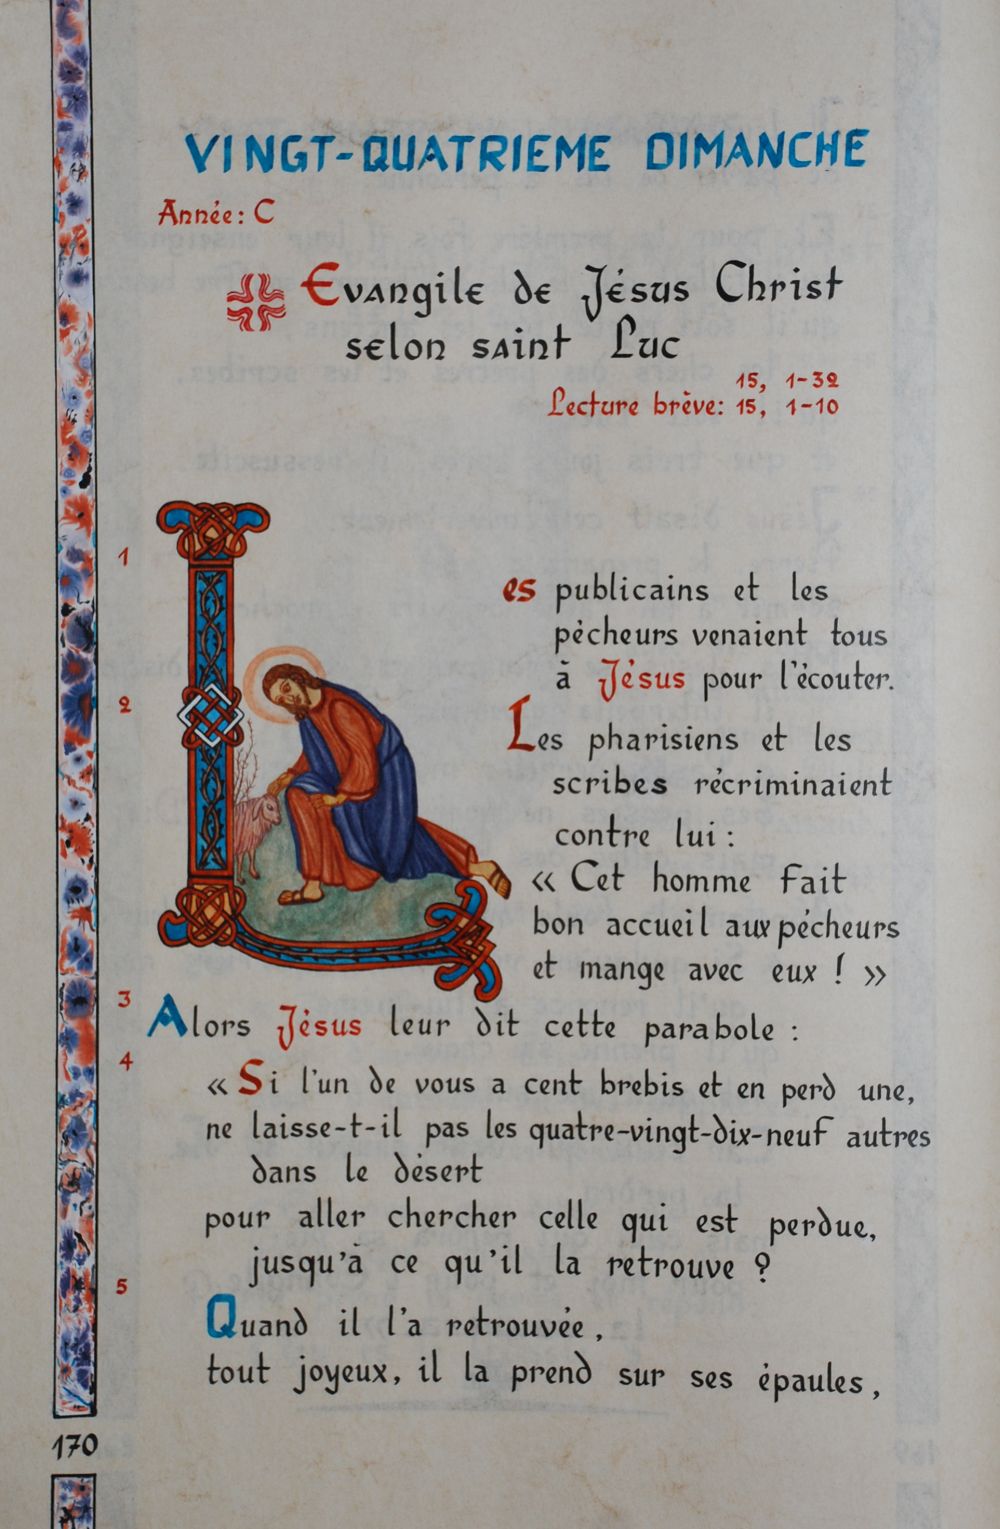 VINGT-QUATRIEME DIMANCHE
Année: C
Evangile de Jésus Christ
selon saint Luc
15, 1-32
Lecture brève: 15, 1-10
1
Les publicains et les
pécheurs venaient tous
à Jésus pour l'écouter.
2
Les pharisiens et les
scribes récriminaient
contre lui :
« Cet homme fait
bon accueil aux pécheurs
et mange avec eux ! »
3
Alors Jésus leur dit cette parabole :
4
« Si l'un de vous a cent brebis et en perd une,
ne laisse-t-il pas les quatre-vingt-dix-neuf autres
dans le désert
pour aller chercher celle qui est perdue,
jusqu'à ce qu'il la retrouve ?
5
Quand il l'a retrouvée,
tout joyeux, il la prend sur ses épaules,
170